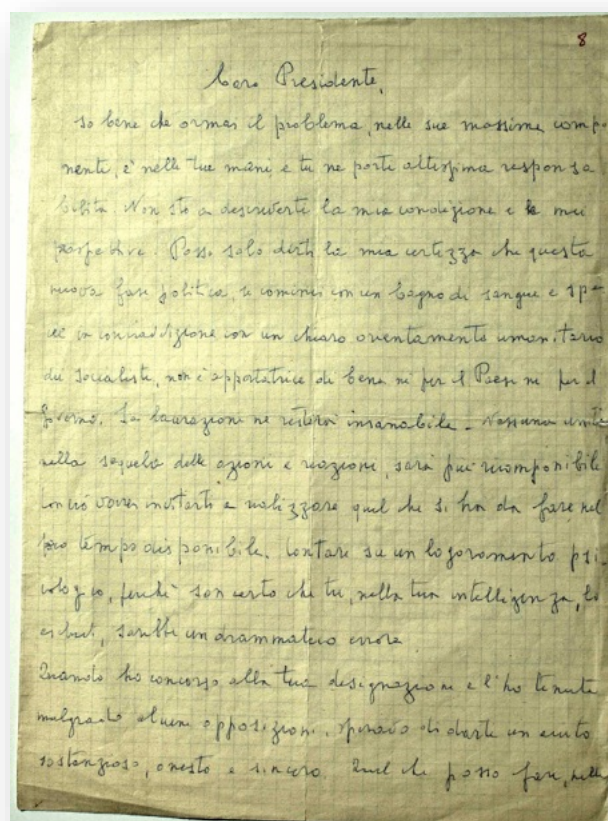 8
Caro Presidente,
so bene che ormai il problema, nelle sue massime compo-
nenti, è nelle tue mani e tu ne porti altissima responsa
bilità. Non sto a descriverti la mia condizione e le mie
prospettive. Posso solo dirti la mia certezza che questa
nuova fase politica, se comincia con un bagno di sangue e spe-
cie in contraddizione con un chiaro orientamento umanitario
dei socialisti, non è apportatrice di bene né per il Paese né per il
Governo. La lacerazione ne resterà insanabile. Nessuna unità
nella sequela delle azioni e reazioni, sarà più ricomponibile.
Con ciò vorrei invitarti a realizzare quel che si ha da fare nel
poco tempo disponibile. Contare su un logoramento psi-
cologico, perché son certo che tu, nella tua intelligenza, lo
escludi, sarebbe un drammatico errore.
Quando ho concorso alla tua designazione e l'ho tenuta
malgrado alcune opposizioni, speravo di darti un aiuto
sostanzioso, onesto e sincero. Quel che posso fare, nelle